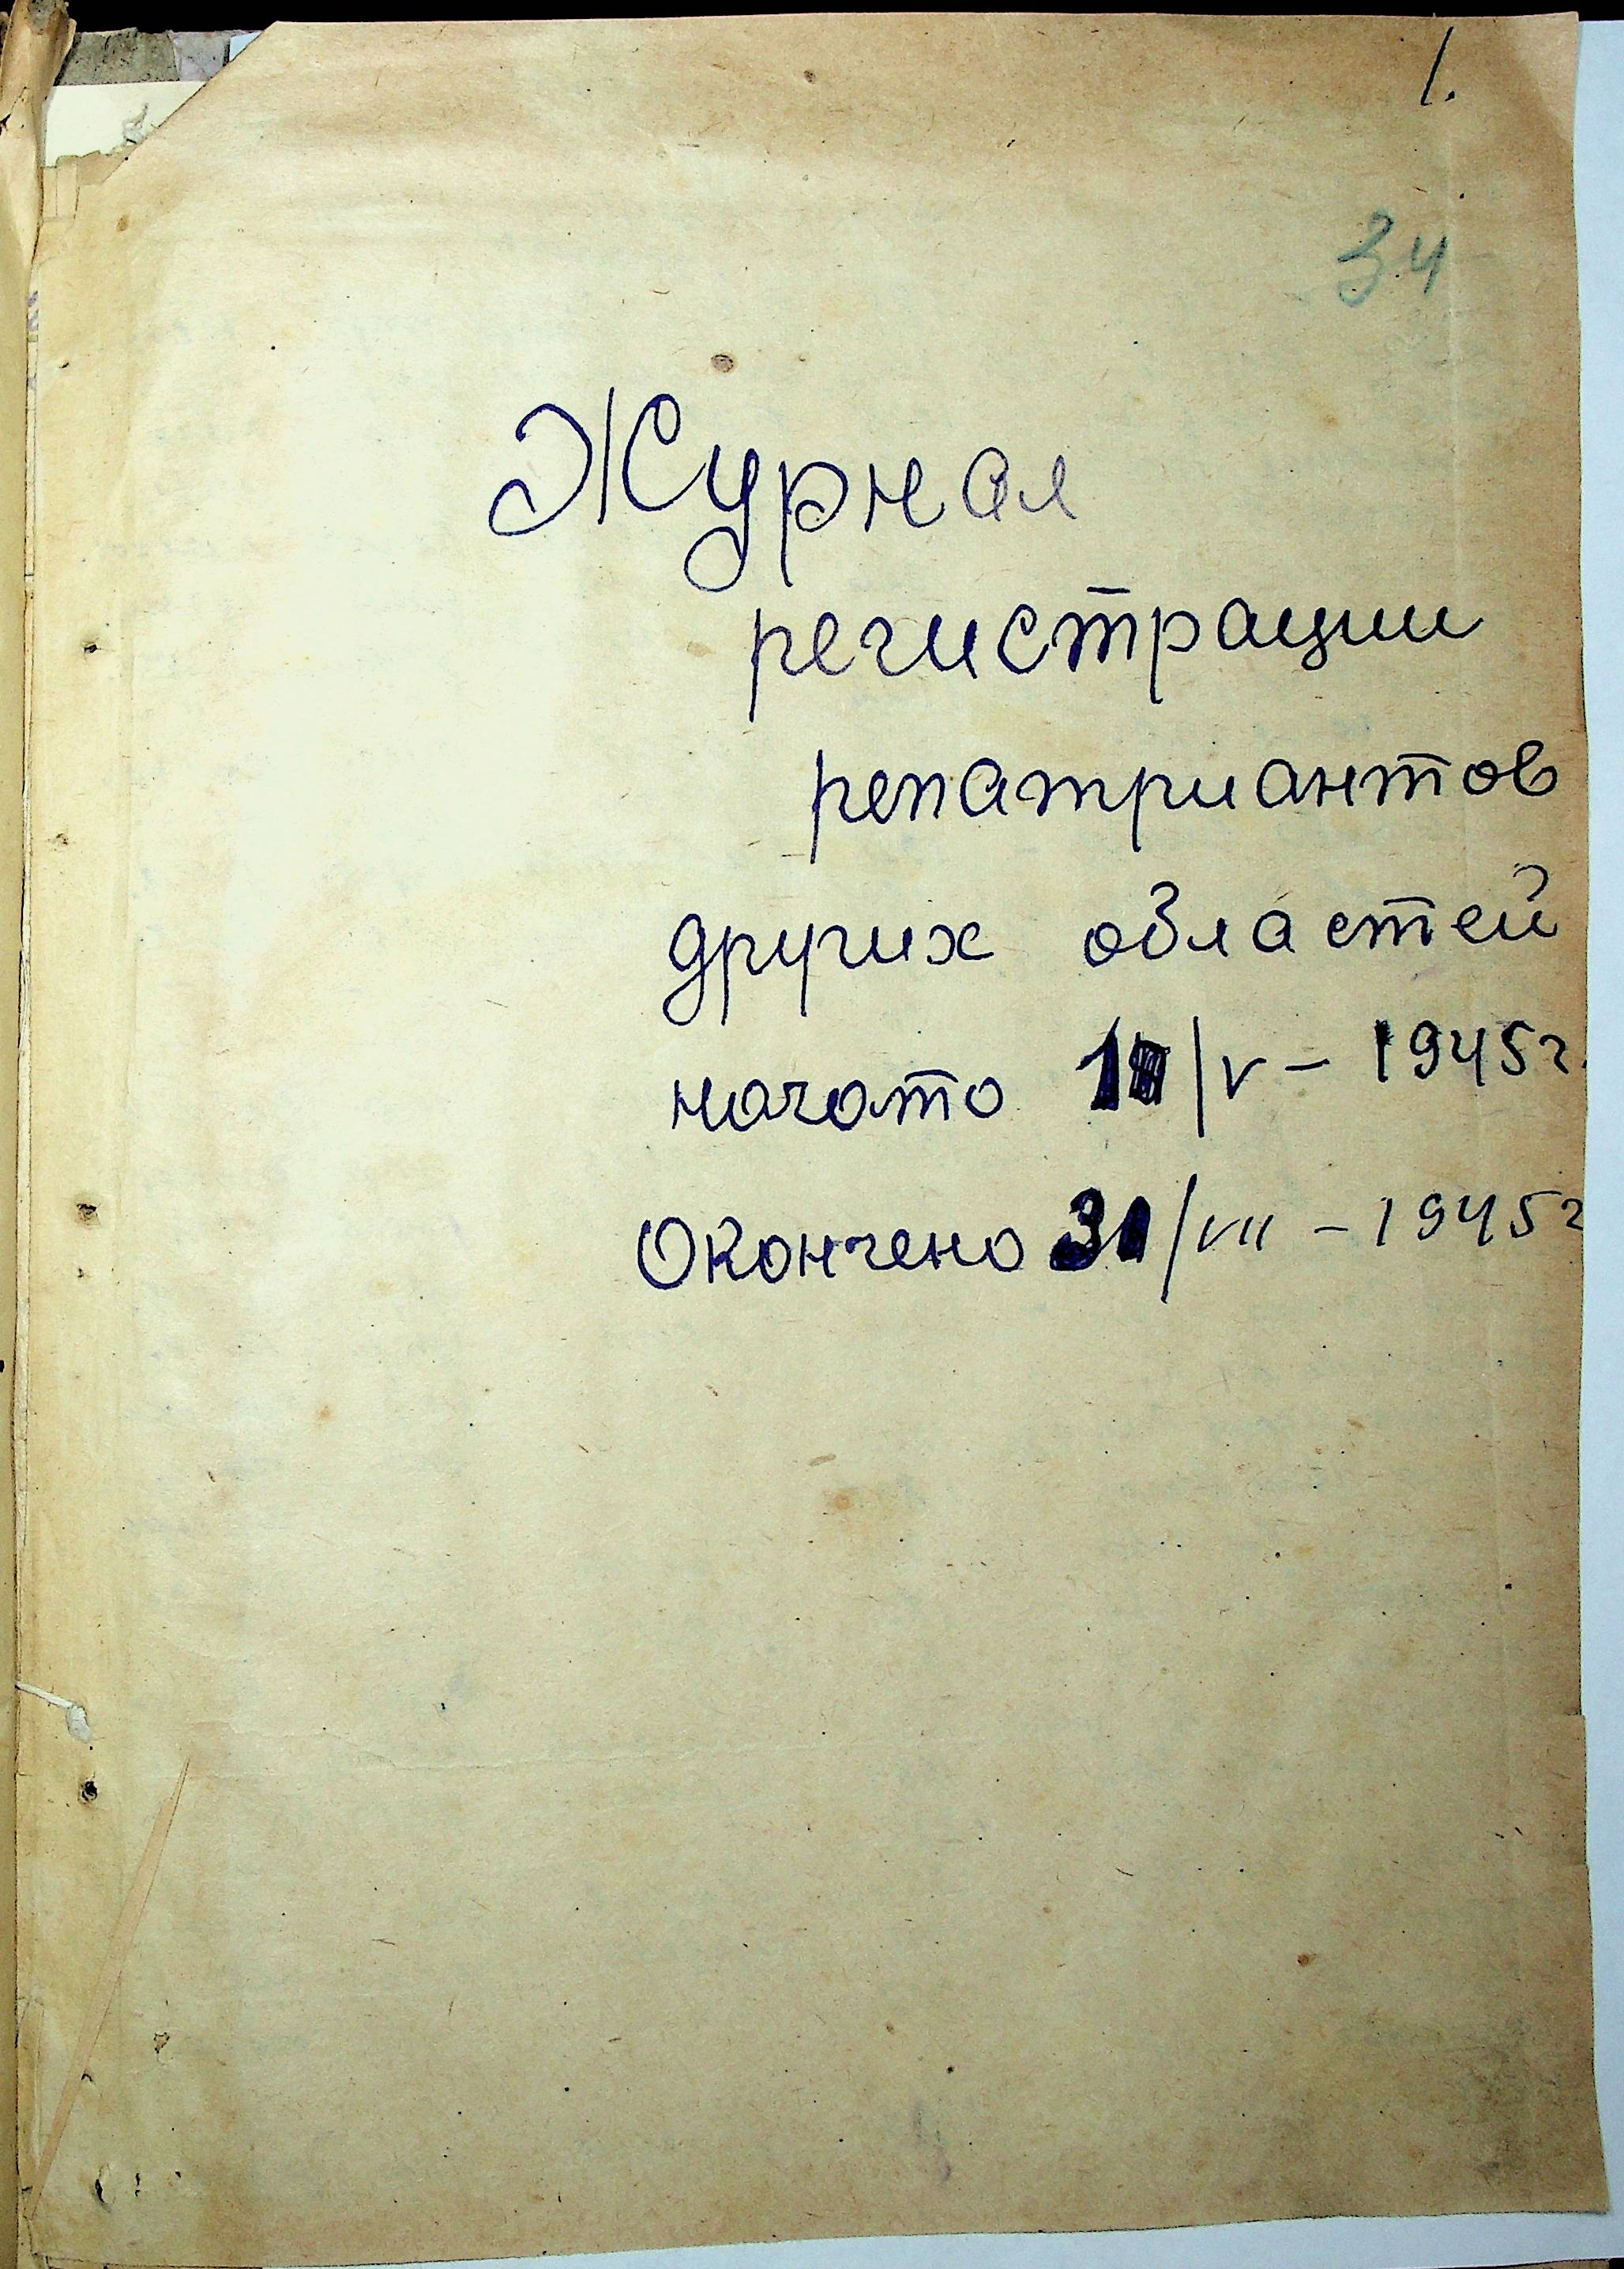 1.
34
Журнал
регистрации
репатриантов
других областей
начато /V - 1945 г.
Окончено 31/VII - 1945 г